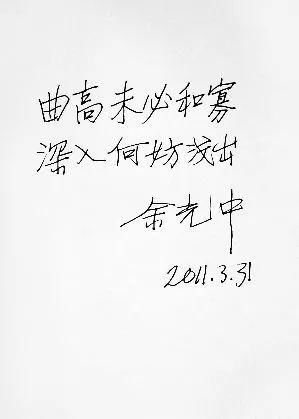 曲高未必和寡
深入何妨浅出
余光中
2011.3.31